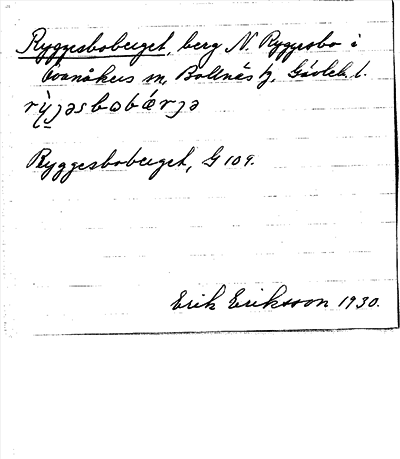 Ryggesboberget, berg N. Ryggesbo i
Ovanåkers sn, Bollnäs tg, Gävleb. l.
Ryggesboberget, G 109.
Erik Eriksson 1930.